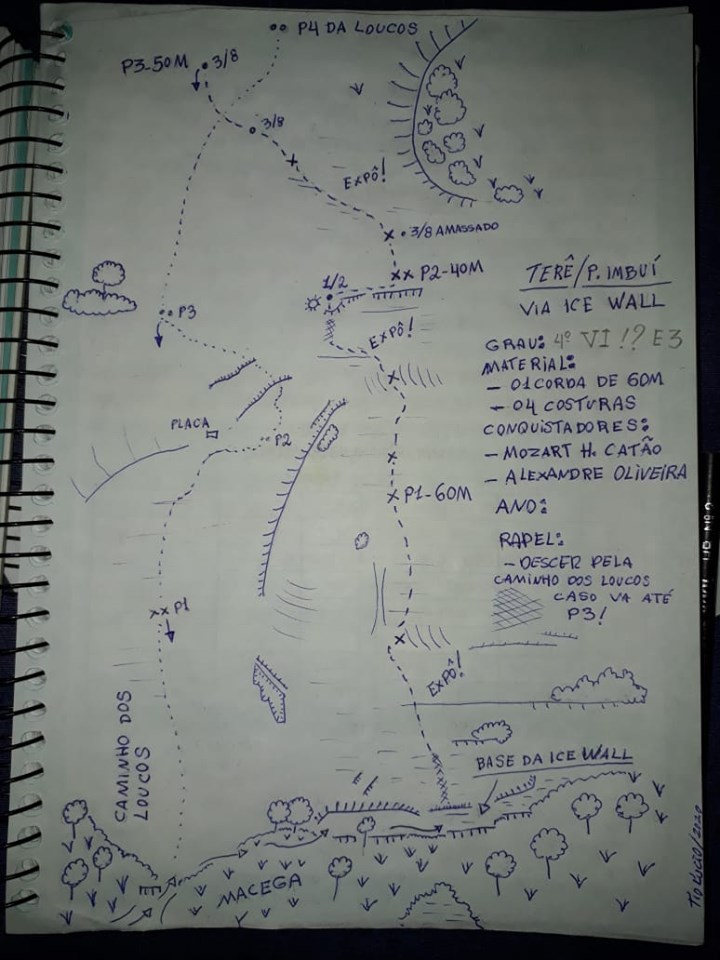 P4 DA LOUCOS
P3-50M
3/8
3/8
EXPÔ!
3/8 AMASSADO
P2-40M
1/2
EXPÔ!
P3
PLACA
P2
P1-60M
P1
EXPÔ!
CAMINHO DOS
LOUCOS
BASE DA ICE WALL
MACEGA
TERÊ/P. IMBUÍ
VIA ICE WALL
GRAU: 4º VI !? E3
MATERIAL:
- 01 CORDA DE 60M
- 04 COSTURAS
CONQUISTADORES:
- MOZART H. CATÃO
- ALEXANDRE OLIVEIRA
ANO:
RAPEL:
- DESCER PELA
CAMINHO DOS LOUCOS
CASO VA ATÉ
P3!